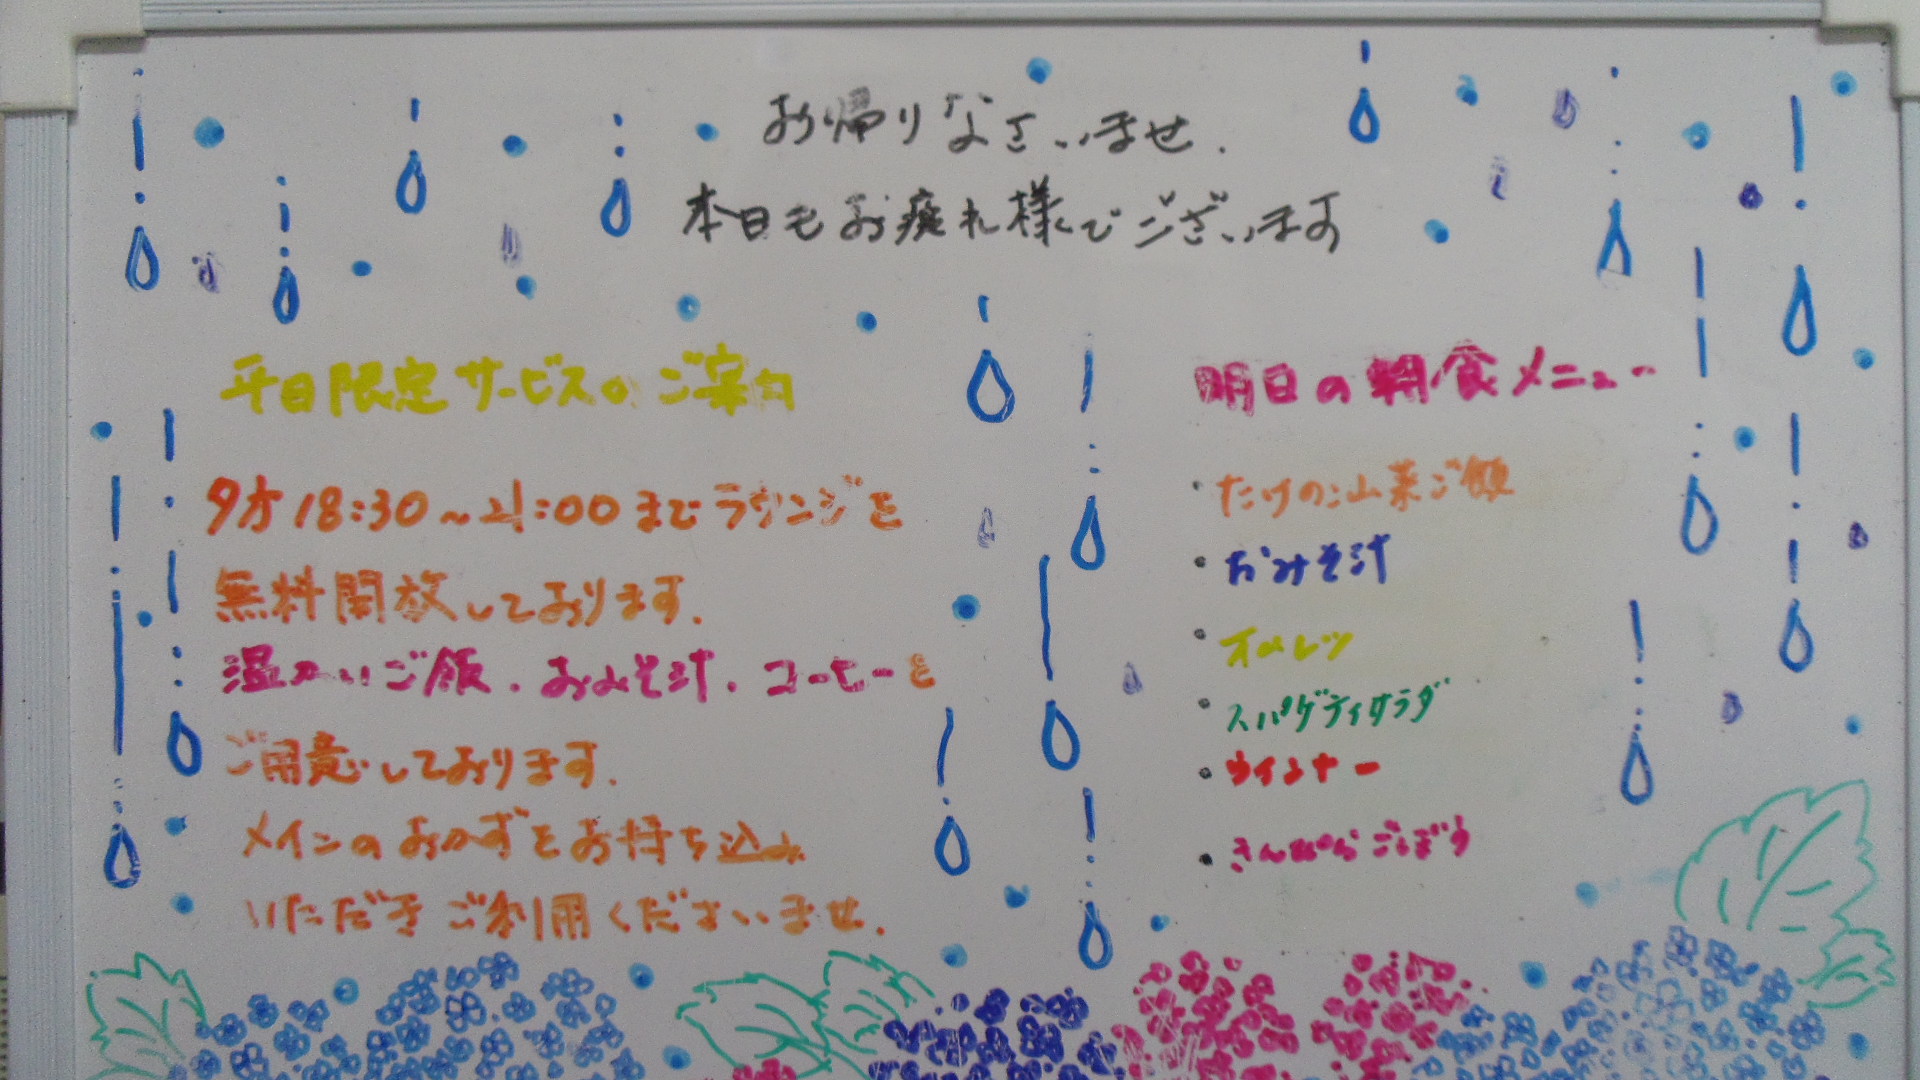 お帰りなさいませ.
本日もお疲れ様でございます
平日限定サービスのご案内
夕方18:30～21:00までラウンジを
無料開放しております.
温かいご飯.おみそ汁.コーヒーを
ご用意しております.
メインのおかずをお持ち込み
いただきご利用くださいませ.
明日の朝食メニュー
・たけのこ山菜ご飯
・おみそ汁
・オムレツ
・スパゲティサラダ
・ウインナー
・きんぴらごぼう